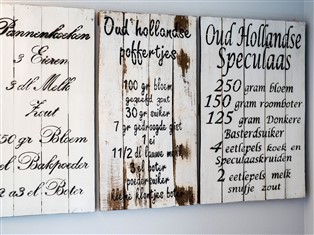 Pannenkoeken
3 Eieren
3 dl Melk
Zout
50 gr Bloem
el Bakpoeder
a 3 el Boter
Oud hollandse
poffertjes
100 gr bloem
gezeefd zout
30 gr suiker
7 gr gedroogde gist
1 ei
1 1/2 dl lauwe melk
3 el boter
poedersuiker
kleine klontjes boter
Oud Hollandse
Speculaas
250 gram bloem
150 gram roomboter
125 gram Donkere
Basterdsuiker
4 eetlepels koek en
Speculaaskruiden
2 eetlepels melk
snufje zout